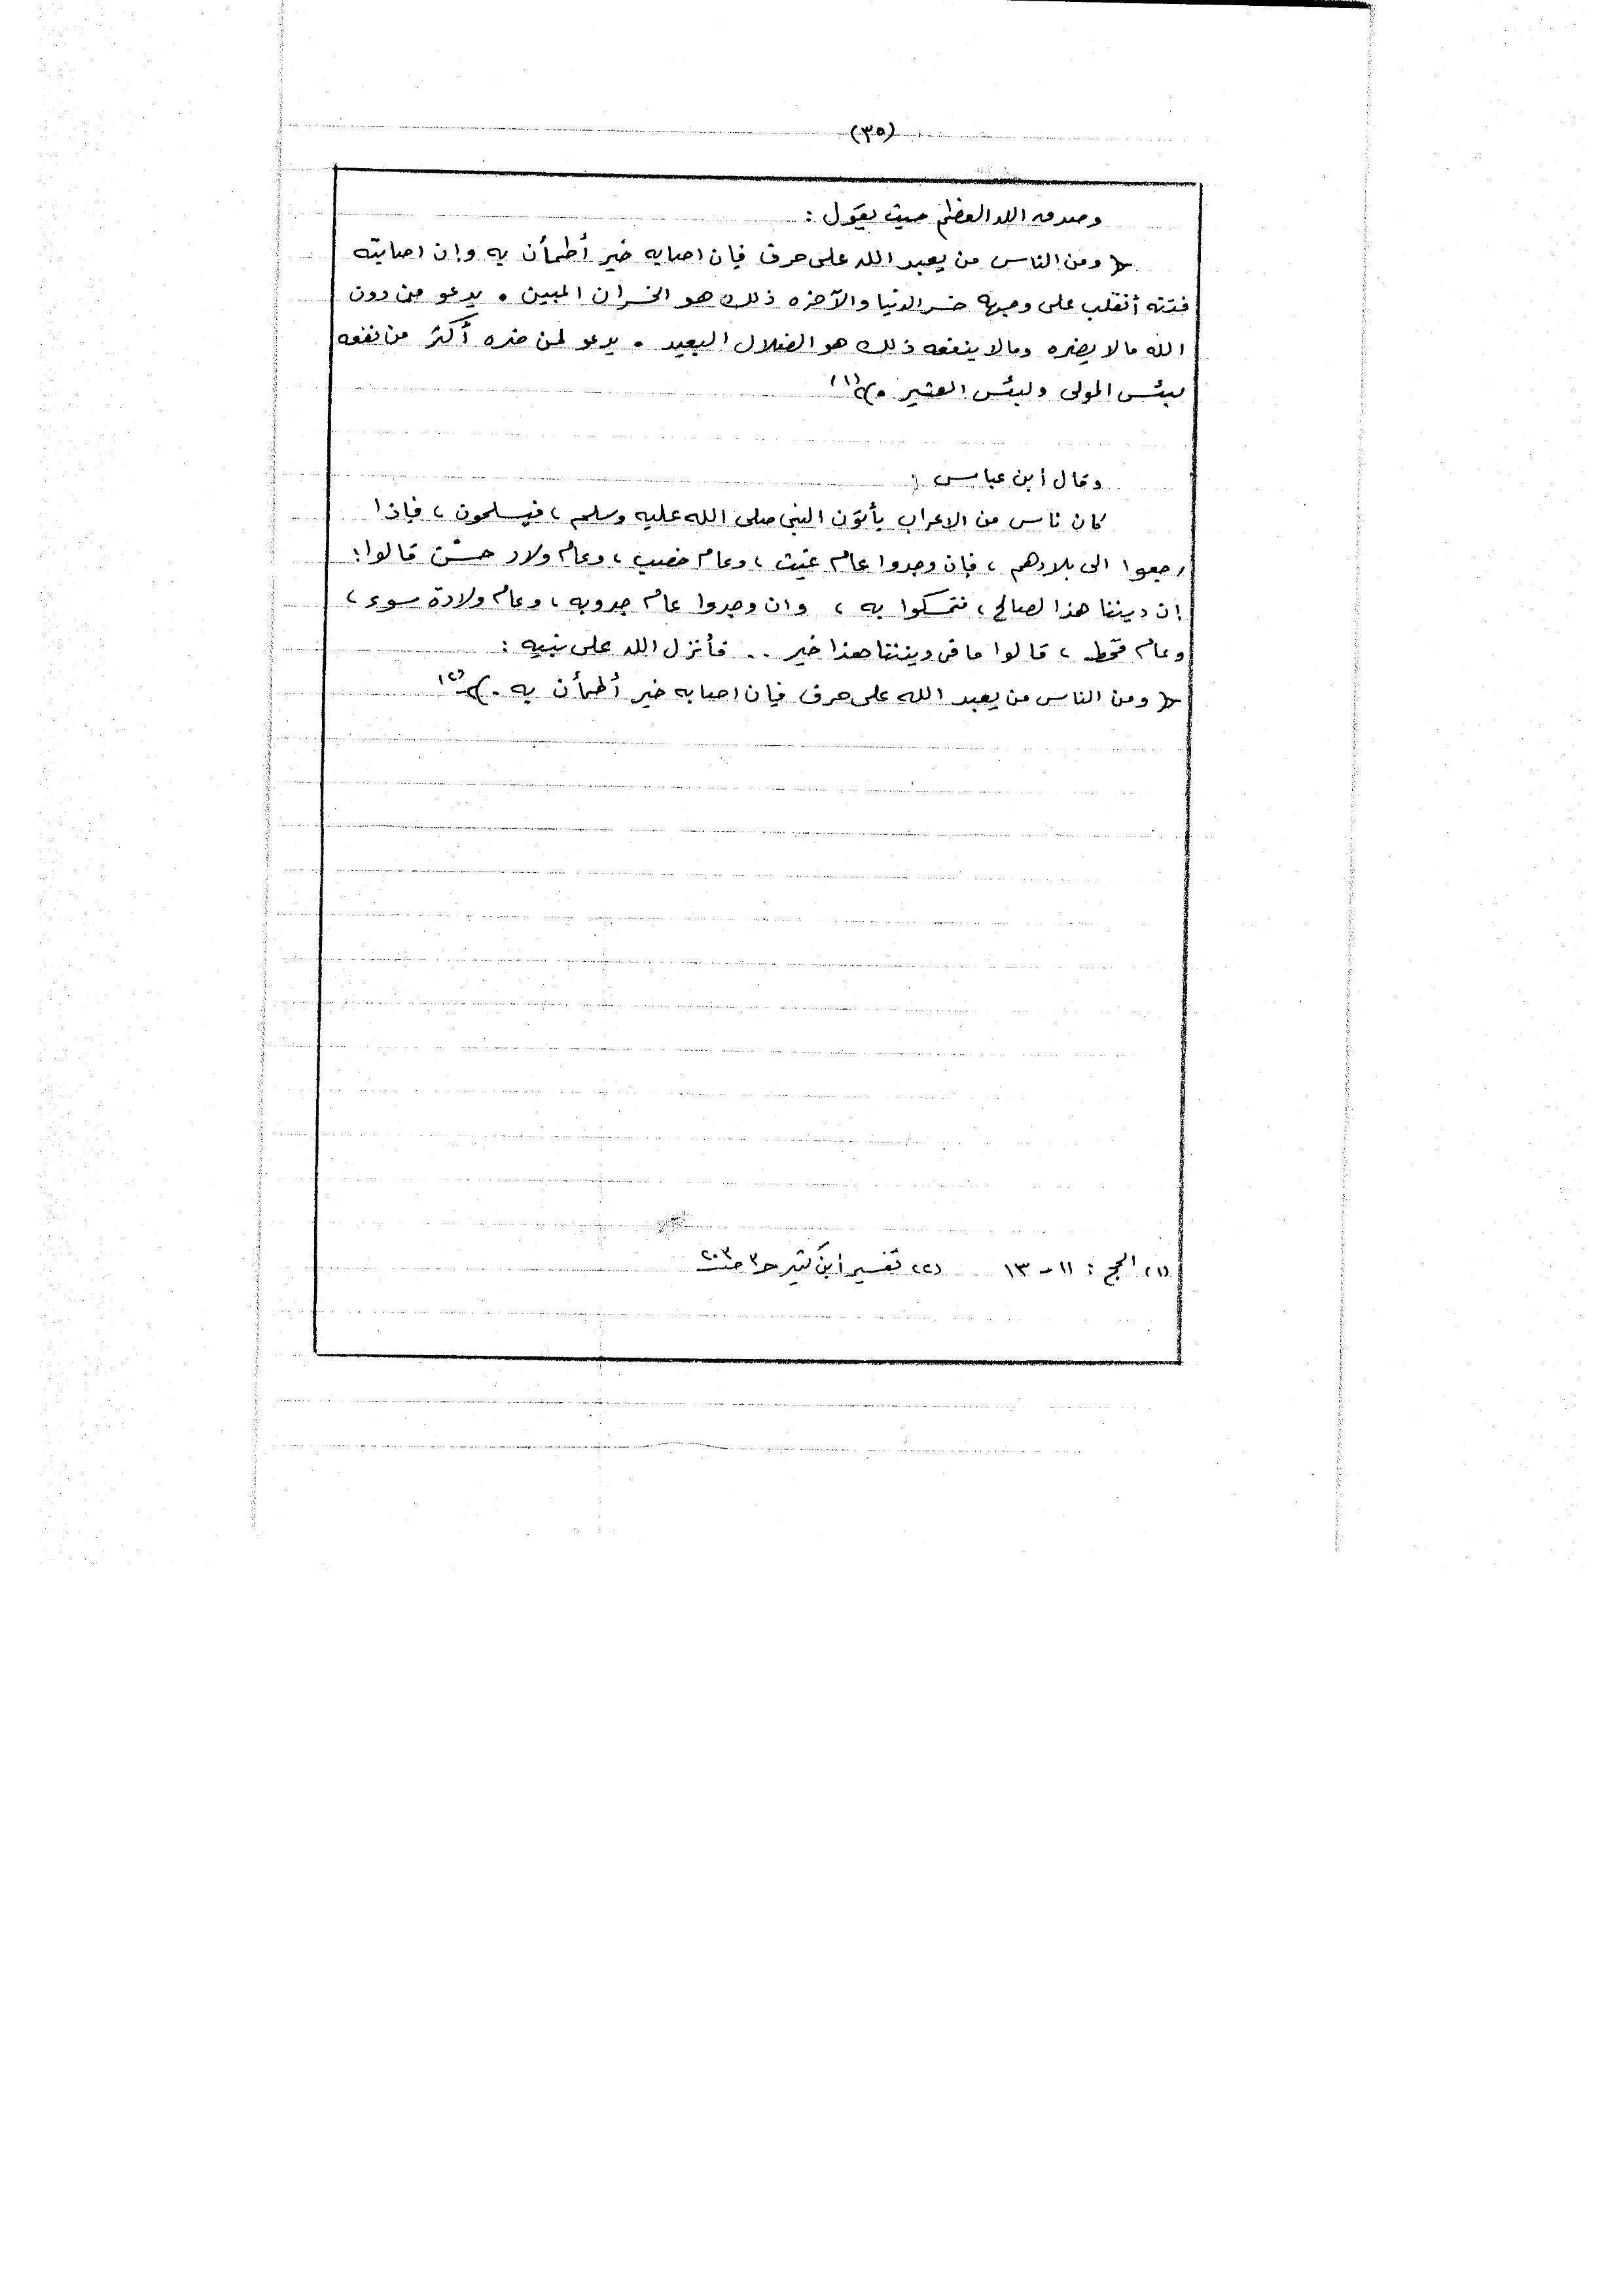 (٣٥)
وصدق الله العظيم حيث يقول :
﴿ ومن الناس من يعبد الله على حرف فإن اصابه خير أطمأن به وإن اصابته
فتنه أنقلب على وجهه خسر الدنيا والآخره ذلك هو الخسران المبين . يدعو من دون
الله مالا يضره ومالا ينفعه ذلك هو الضلال البعيد . يدعو لمن ضره أكثر من نفعه
لبئس المولى ولبئس العشير . ﴾(١)
وقال أبن عباس :
كان ناس من الاعراب يأتون النبي صلى الله عليه وسلم ، فيسلمون ، فإذا
رجعوا الى بلادهم ، فإن وجدوا عام غيث ، وعام خصب ، وعام ولاد حسن قالوا :
إن ديننا هذا لصالح ، فتمسكوا به ، وان وجدوا عام جدوبه ، وعام ولادة سوء ،
وعام قحط ، قالوا ما فى ديننا هذا خير .. فأنزل الله على نبيه :
﴿ ومن الناس من يعبد الله على حرف فإن اصابه خير أطمأن به . ﴾(٢)
(١) الحج : ١١ - ١٣ (٢) تفسير أبن كثير ح٣ ص٢٠٣